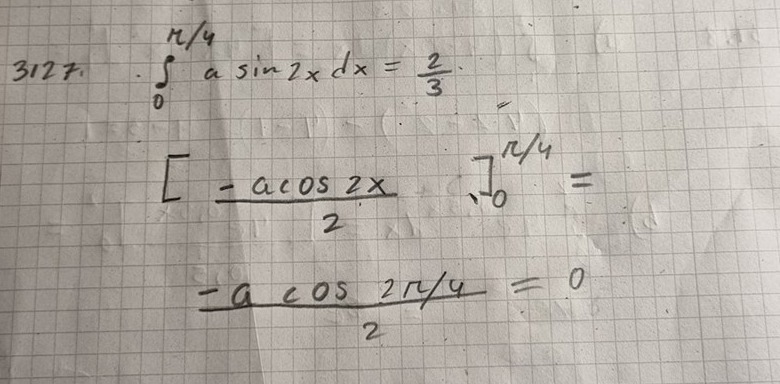 3127. ∫₀^(π/4) a sin 2x dx = 2/3.
[ -a cos 2x / 2 ]₀^(π/4) =
-a cos 2π/4 / 2 = 0